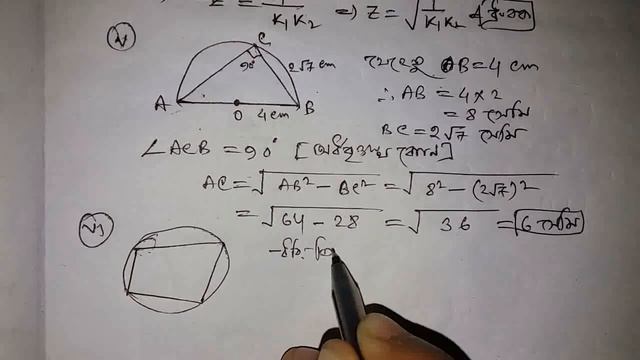 Z = 1/K₁K₂ ⇒ Z = √(1/K₁K₂)
v
C
90°
2√7 cm
A
O
4cm
B
যেহেতু OB = 4 cm
∴ AB = 4 × 2
= 8 সেমি
BC = 2√7 সেমি
∠ACB = 90° [অর্ধবৃত্তস্থ কোণ]
AC = √(AB² − BC²) = √(8² − (2√7)²)
= √(64 − 28) = √36 = 6 সেমি
vi